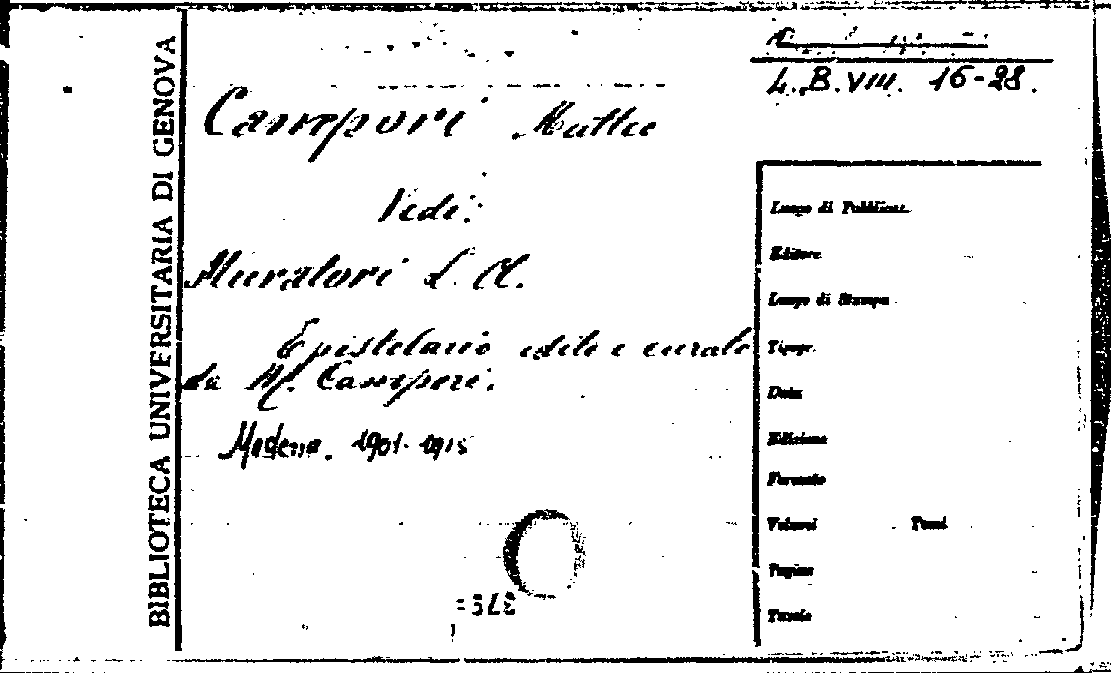 BIBLIOTECA UNIVERSITARIA DI GENOVA
4.B.VIII. 16-28.
Campori Matteo
Vedi:
Muratori L. A.
Epistolario edito e curato
da M. Campori.
Modena. 1901-1915
Luogo di Pubblicaz.
Editore
Luogo di Stampa
Tipogr.
Data
Edizione
Formato
Volumi Tomi
Pagine
Tavole